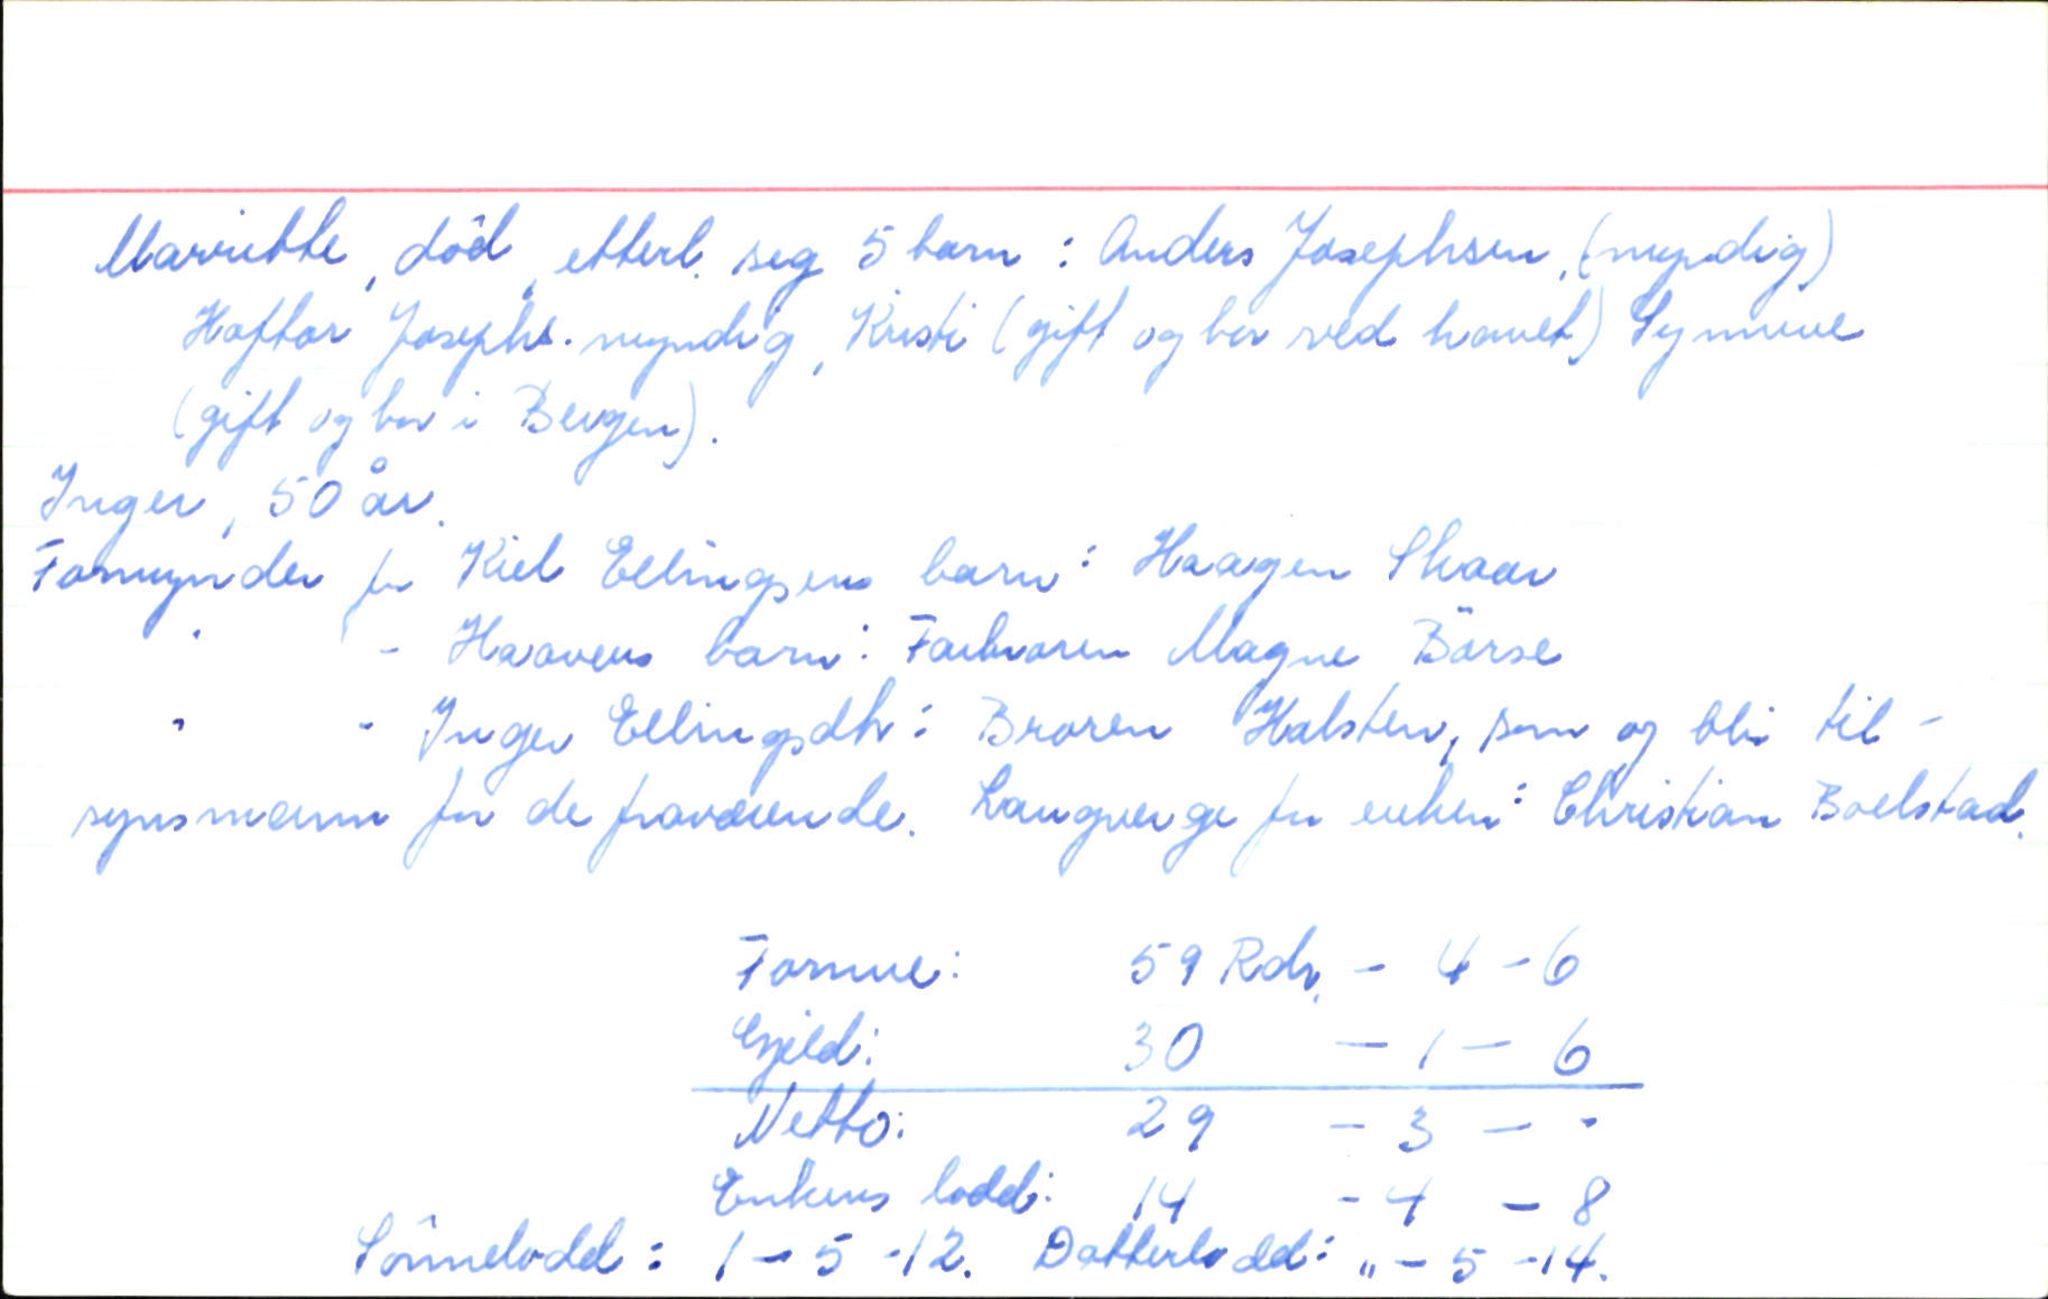 Marritte, död, etterl. seg 5 barn: Anders Josephsen, (myndig)
Haftor Josephs. myndig, Kristi (gift og bor ved havet) Synneve
(gift og bor i Bergen).
Inger, 50 år.
Formynder for Kiel Ellingsens barn: Haagen Skaar
" - Haavens barn: Farbroren Magne Börse
" - Inger Ellingsdtr: Broren Halsten, som og blir til-
synsmann for de fraværende. Laugverge for enken: Christian Boelstad.
Formue: 59 Rdr. - 4 - 6
Gjeld: 30 - 1 - 6
Netto: 29 - 3 - -
Enkens lodd: 14 - 4 - 8
Sönnelodd: 1 - 5 - 12. Datterlodd: " - 5 - 14.